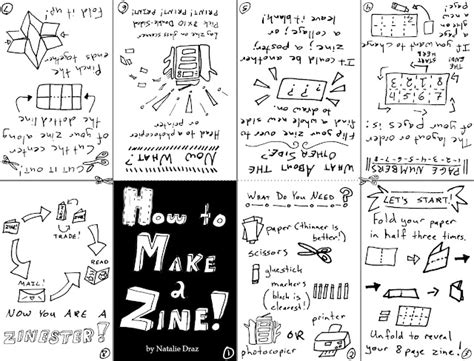 How to
Make
a
Zine!
by Natalie Draz
1
What Do You Need?
paper (thinner is
better!)
scissors
gluestick
markers
(black is
clearest!)
or
printer
photocopier
2
Let's Start!
Fold your paper
in half three times.
Unfold to reveal
your 8 page zine!
Page Numbers!!
The layout or order
of your pages is:
If you want to change
What About the
Other Side?
Flip your zine over to
find a whole new side
to draw on.
???
It could be another
zine, a poster,
a collage; or
leave it blank!
5
Now What?
Head to a photocopier
or printer
Print! Print! Print!
6
Cut it out!
Cut the center
of your zine along
the dotted line
Pinch the
ends together
Fold it up!
Trade!
Read
Mail!
Now you are a
Zinester!
8